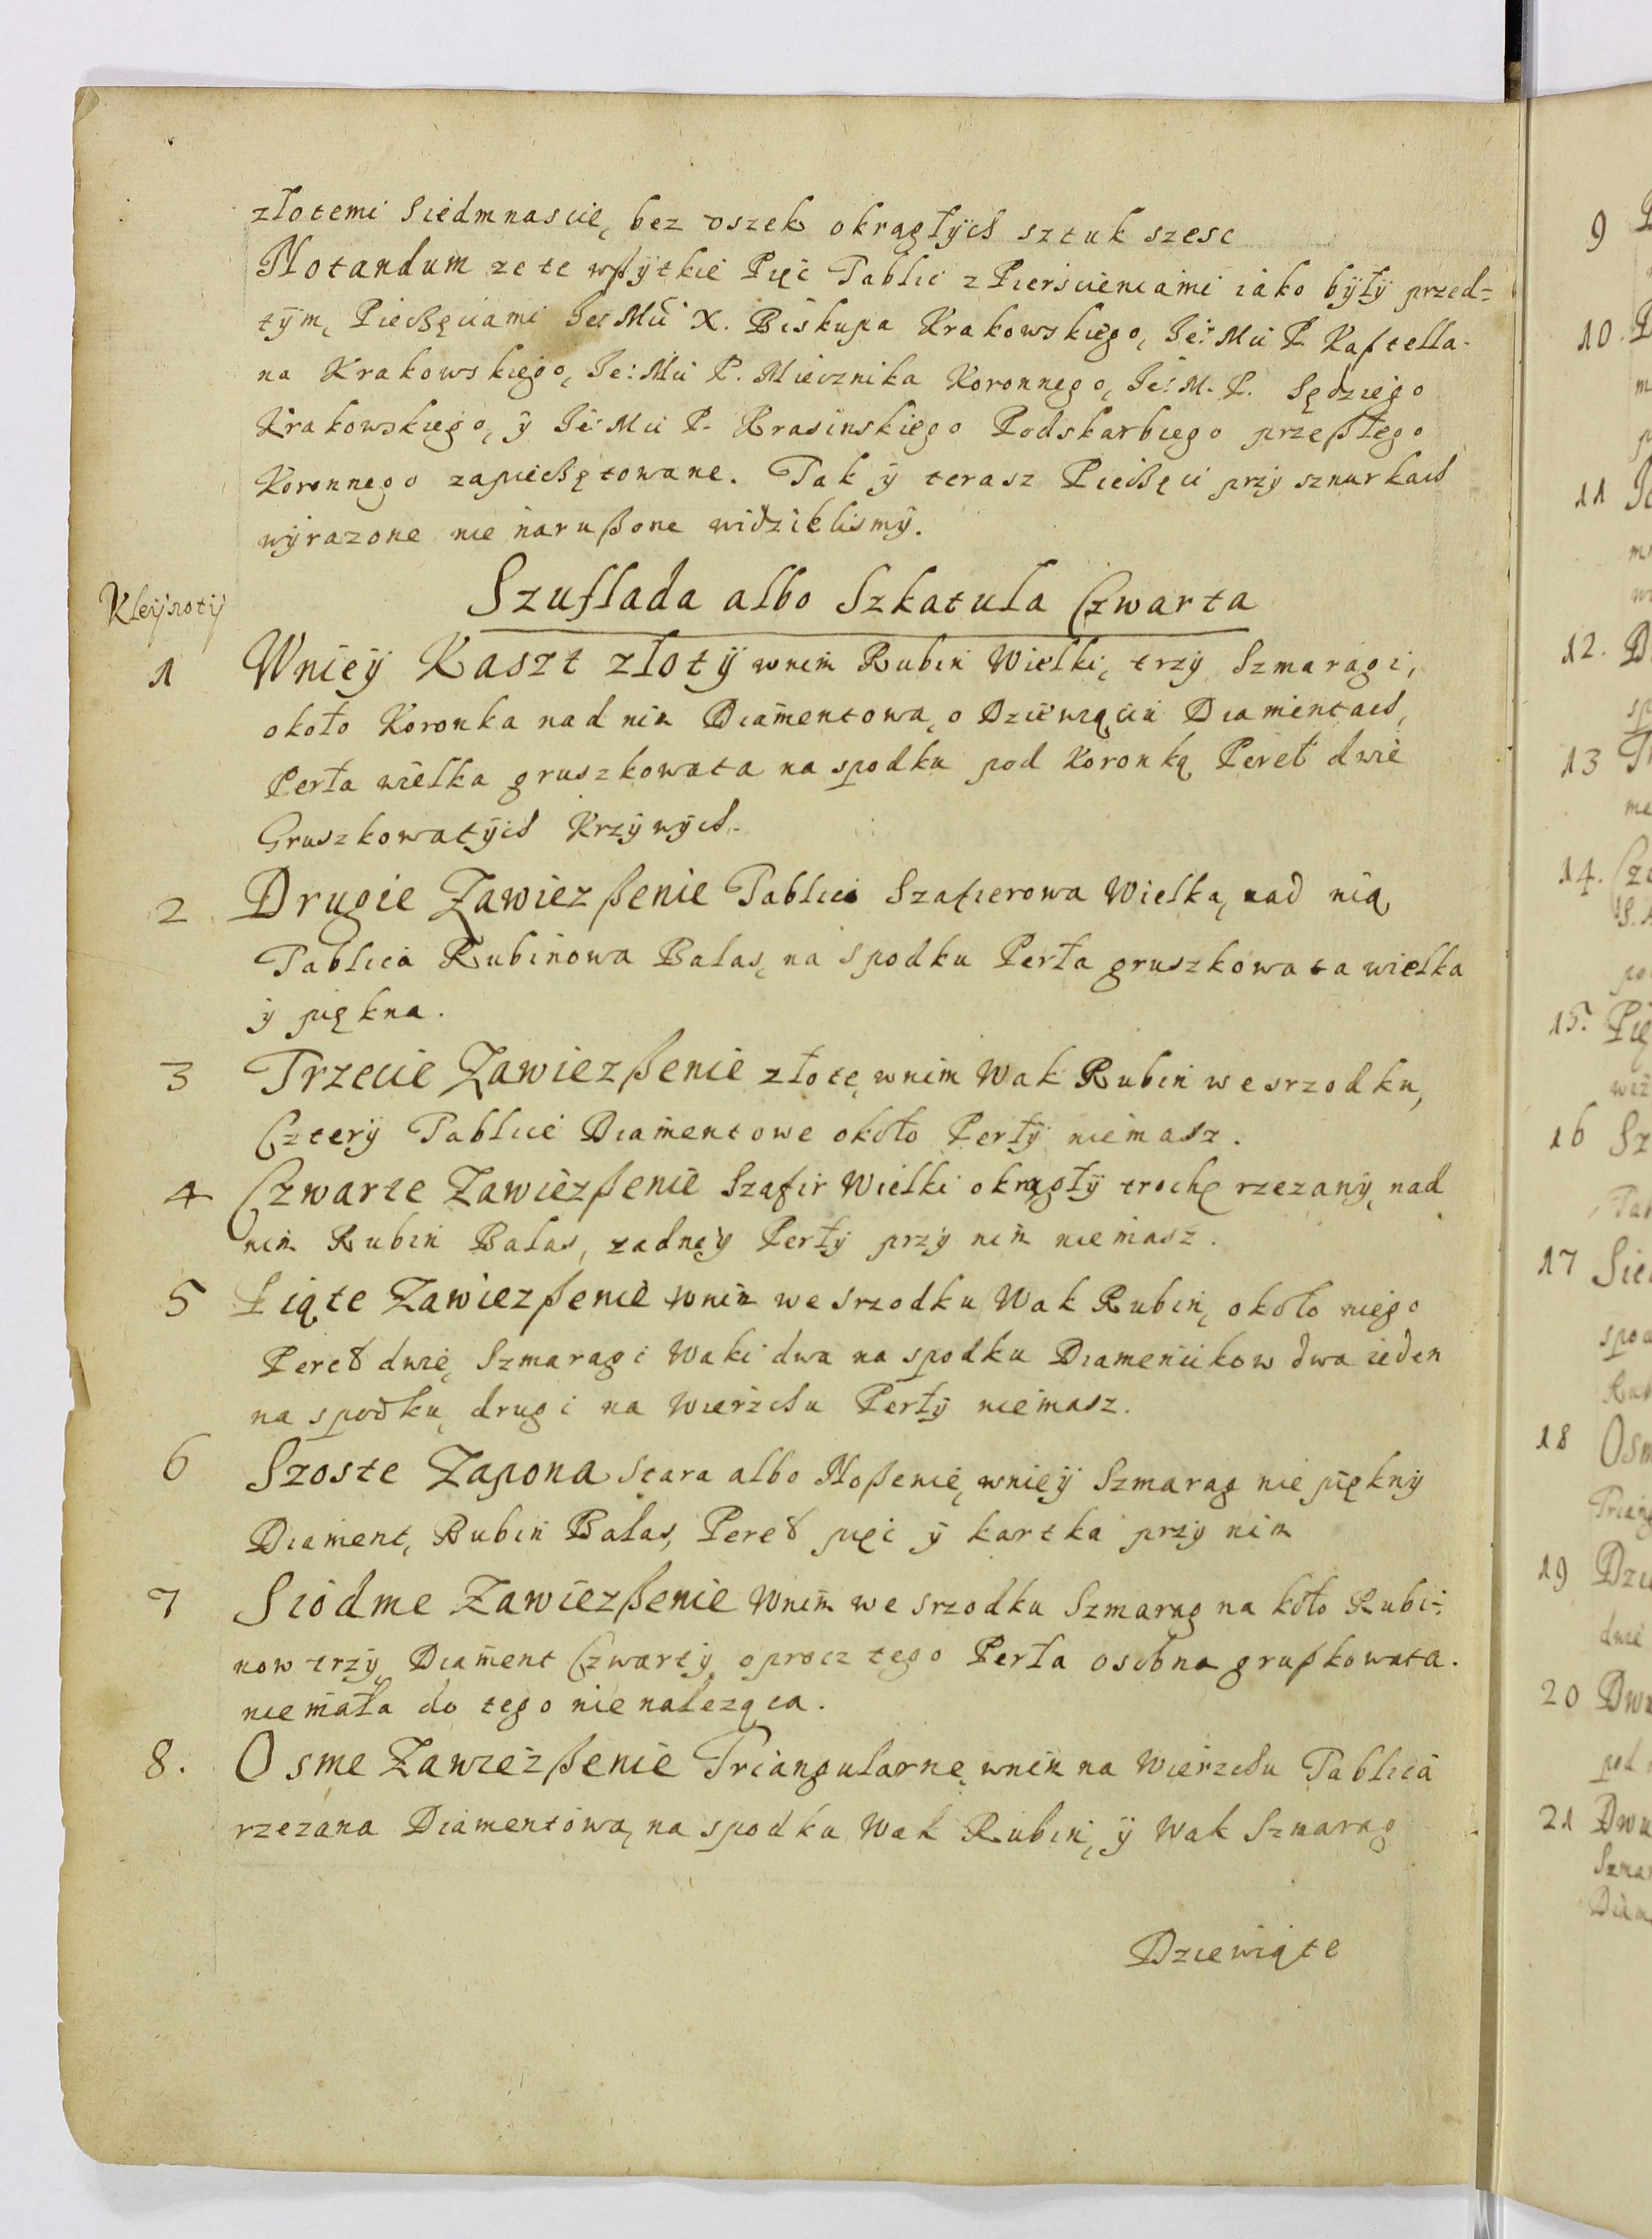 złotemi Siedmnascie, bez oszek okrągłych sztuk szesc
Notandum ze te wszytkie Pięc Tablic z Pierscieniami iako były przed-
tym, Pieczęciami Je: Mci X. Biskupa Krakowskiego, Je: Mci P. Kasztella-
na Krakowskiego, Je: Mci P. Miecznika Koronnego, Je: M. P. Sędziego
Krakowskiego, y Je: Mci P. Krasinskiego Podskarbiego przeßłego
Koronnego zapieczętowane. Tak y terasz Pieczęci przy sznurkach
wyrazone nie narußone widzielismy.
Szuflada albo Szkatula Czwarta
Kleynoty
1 Wniey Kaszt złoty wnim Rubin Wielki, trzy Szmaragi,
około Koronka nad nim Diamentowa, o Dziewiąciu Diamentach,
Perła wielka gruszkowata na spodku pod Koronką Pereł dwie
Gruszkowatych Krzywych.
2 Drugie Zawiezßenie Tablica Szafierowa Wielka, nad nią
Tablica Rubinowa Balas, na Spodku Perła gruszkowata wielka
y piękna.
3 Trzecie Zawiezßenie złote, wnim Wak Rubin we srzodku,
Cztery Tablice Diamentowe około Perły niemasz.
4 Czwarte Zawiezßenie Szafir Wielki okrągły trochę rzezany, nad
nim Rubin Balas, zadney Perły przy nim niemasz.
5 Piąte Zawiezßenie wnim we Srzodku Wak Rubin, około niego
Pereł dwie, Szmaragi Waki dwa na spodku Diamencikow dwa ieden
na spodku, drugi na Wierzchu Perły niemasz.
6 Szoste Zapona Stara albo Noßenie, wniey Szmarag nie piękny
Diament, Rubin Balas, Pereł pięc y kartka przy nim
7 Siodme Zawiezßenie Wnim we srzodku Szmarag na koło Rubi-
now trzy Diament Czwarty, oprocz tego Perła osobna grußkowata.
niemała do tego nienaleząca.
8. Osme Zawiezßenie Triangularne, wnim na Wierzchu Tablica
rzezana Diamentowa, na spodku Wak Rubin, y Wak Szmarag
Dziewiąte
9
10.
11
12.
13
14.
15.
16 Sz
17 Sie
18 Osm
19 Dzie
20 Dwa
21 Dwu